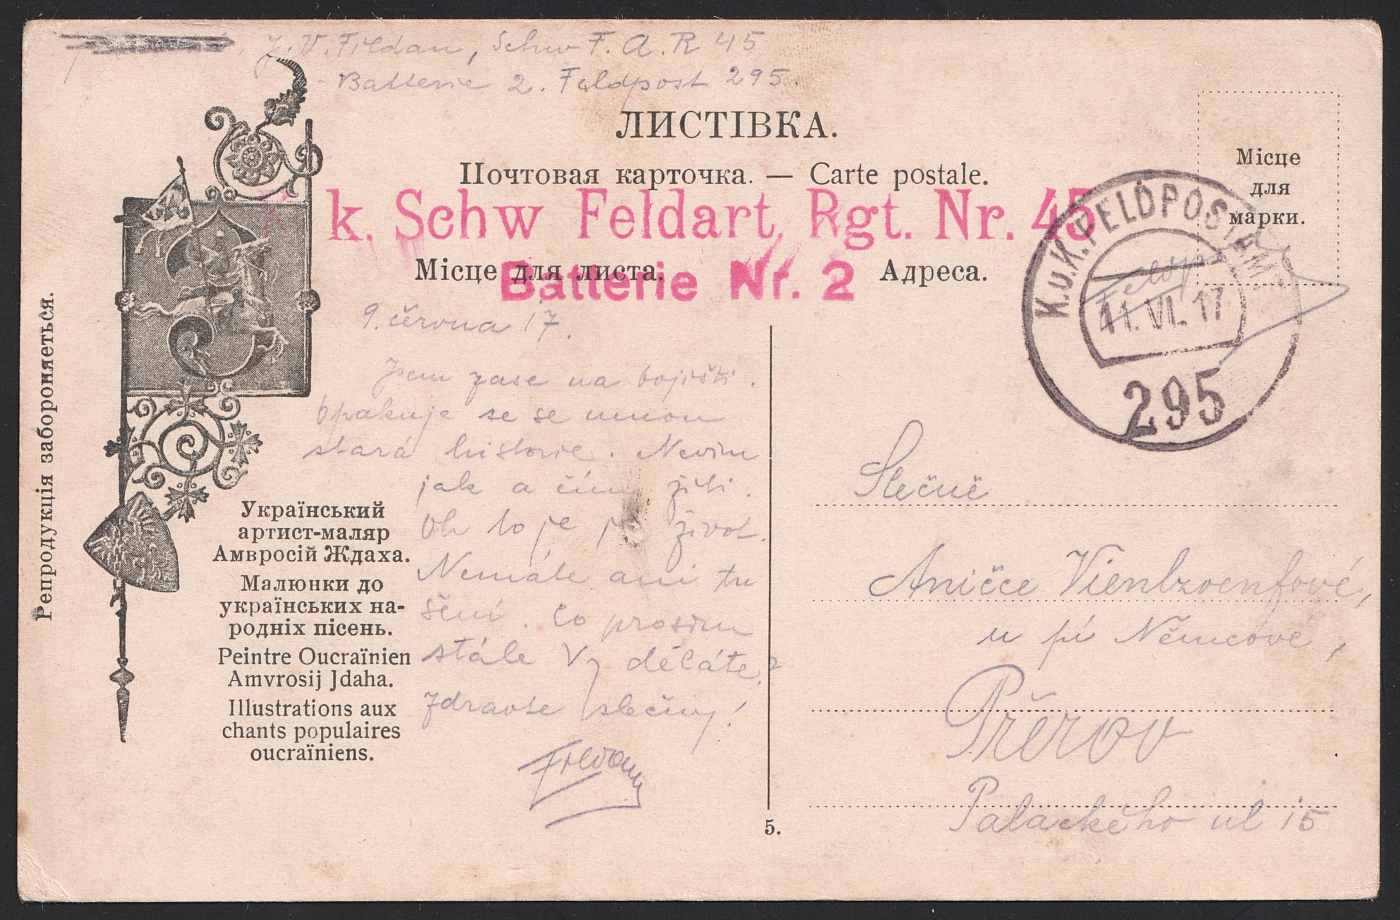 J. V. Fildan, Schw F. A. R 45
Batterie 2. Feldpost 295.
ЛИСТІВКА.
Почтовая карточка. — Carte postale.
k. Schw Feldart. Rgt. Nr. 45
Batterie Nr. 2
Місце для листа.
Адреса.
Місце
для
марки.
K.u.K. FELDPOSTAMT
11. VI. 17
295
9. června 17.
Jsem zase na bojišti.
Opakuje se se mnou
stará historie. Nevím
jak a čím žíti.
Oh to je život.
Nemáte ani tu
šení. Co prosím
stále Vy děláte?
Zdravte slečny!
Fildan
Slečně
Aničce
u pí Němcové,
Přerov
Palackého ul 15
Репродукція забороняеться.
Український
артист-маляр
Амвросій Ждаха.
Малюнки до
українських на-
родніх пісень.
Peintre Oucraïnien
Amvrosij Jdaha.
Illustrations aux
chants populaires
oucraïniens.
5.